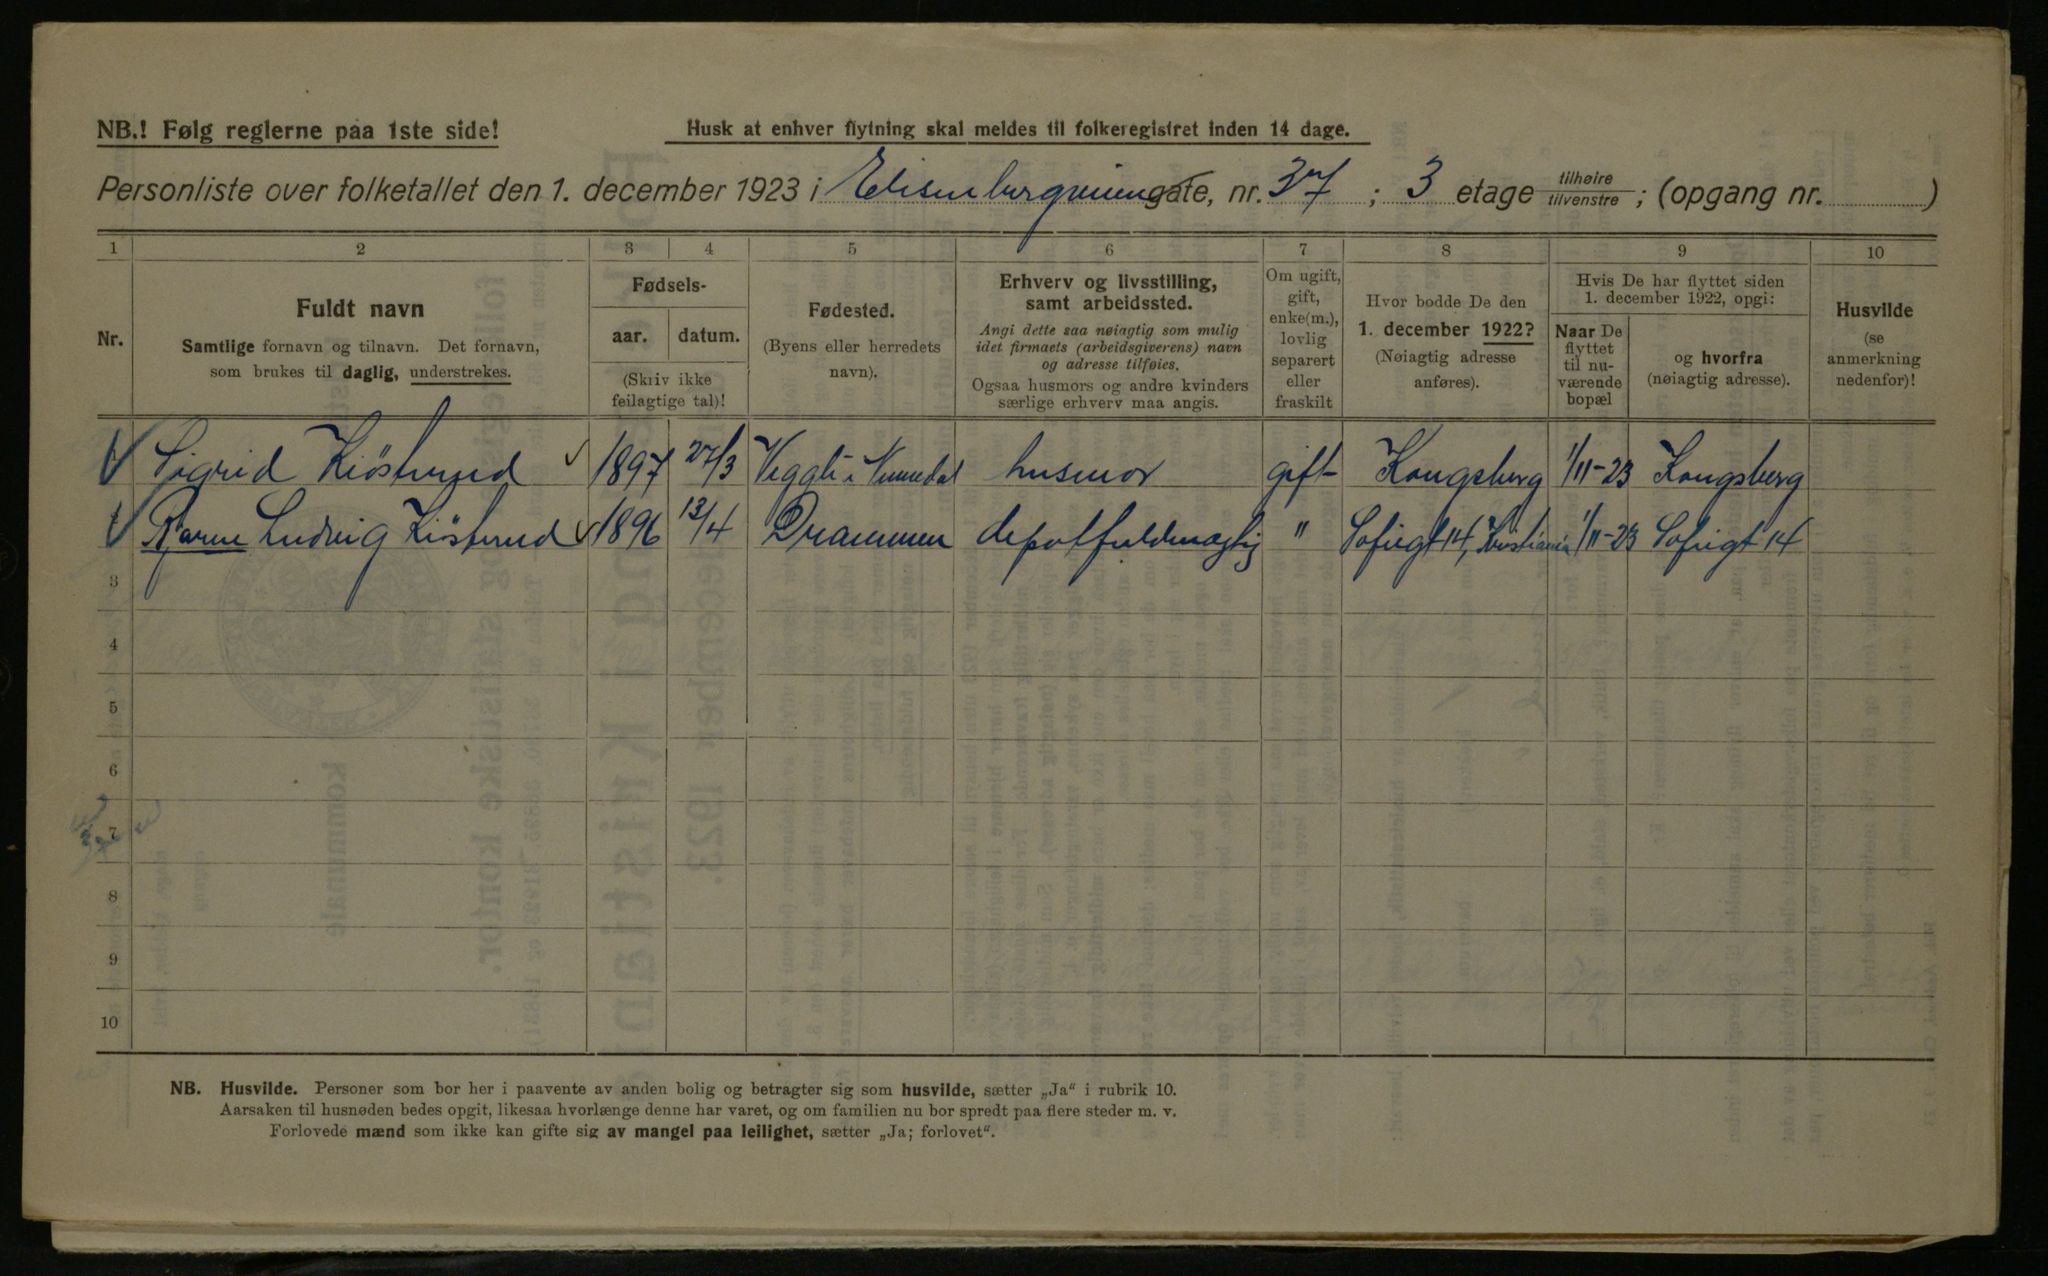 NB.! Følg reglerne paa 1ste side!
Husk at enhver flytning skal meldes til folkeregistret inden 14 dage.
Personliste over folketallet den 1. december 1923 i Elisenbergveien gate, nr. 37 ; 3 etage tilhøire tilvenstre ; (opgang nr. )
1 2 3 4 5 6 7 8 9 10
Nr.
Fuldt navn
Samtlige fornavn og tilnavn. Det fornavn,
som brukes til daglig, understrekes.
Fødsels-
aar. datum.
(Skriv ikke
feilagtige tal)!
Fødested.
(Byens eller herredets
navn).
Erhverv og livsstilling,
samt arbeidssted.
Angi dette saa nøiagtig som mulig
idet firmaets (arbeidsgiverens) navn
og adresse tilføies.
Ogsaa husmors og andre kvinders
særlige erhverv maa angis.
Om ugift,
gift,
enke(m.),
lovlig
separert
eller
fraskilt
Hvor bodde De den
1. december 1922?
(Nøiagtig adresse
anføres).
Hvis De har flyttet siden
1. december 1922, opgi:
Naar De
flyttet
til nu-
værende
bopæl
og hvorfra
(nøiagtig adresse).
Husvilde
(se
anmerkning
nedenfor)!
Sigrid Kiösterud 1897 27/3 Veggli i Numedal husmor gift Kongsberg 1/11-23 Kongsberg
Bjarne Ludvig Kiösterud 1896 13/4 Drammen depotfuldmægtig " Sofiegt 14, Kristiania 1/11-23 Sofiegt 14
3
4
5
6
7
8
9
10
NB. Husvilde. Personer som bor her i paavente av anden bolig og betragter sig som husvilde, sætter „Ja“ i rubrik 10.
Aarsaken til husnøden bedes opgit, likesaa hvorlænge denne har varet, og om familien nu bor spredt paa flere steder m. v.
Forlovede mænd som ikke kan gifte sig av mangel paa leilighet, sætter „Ja; forlovet“.